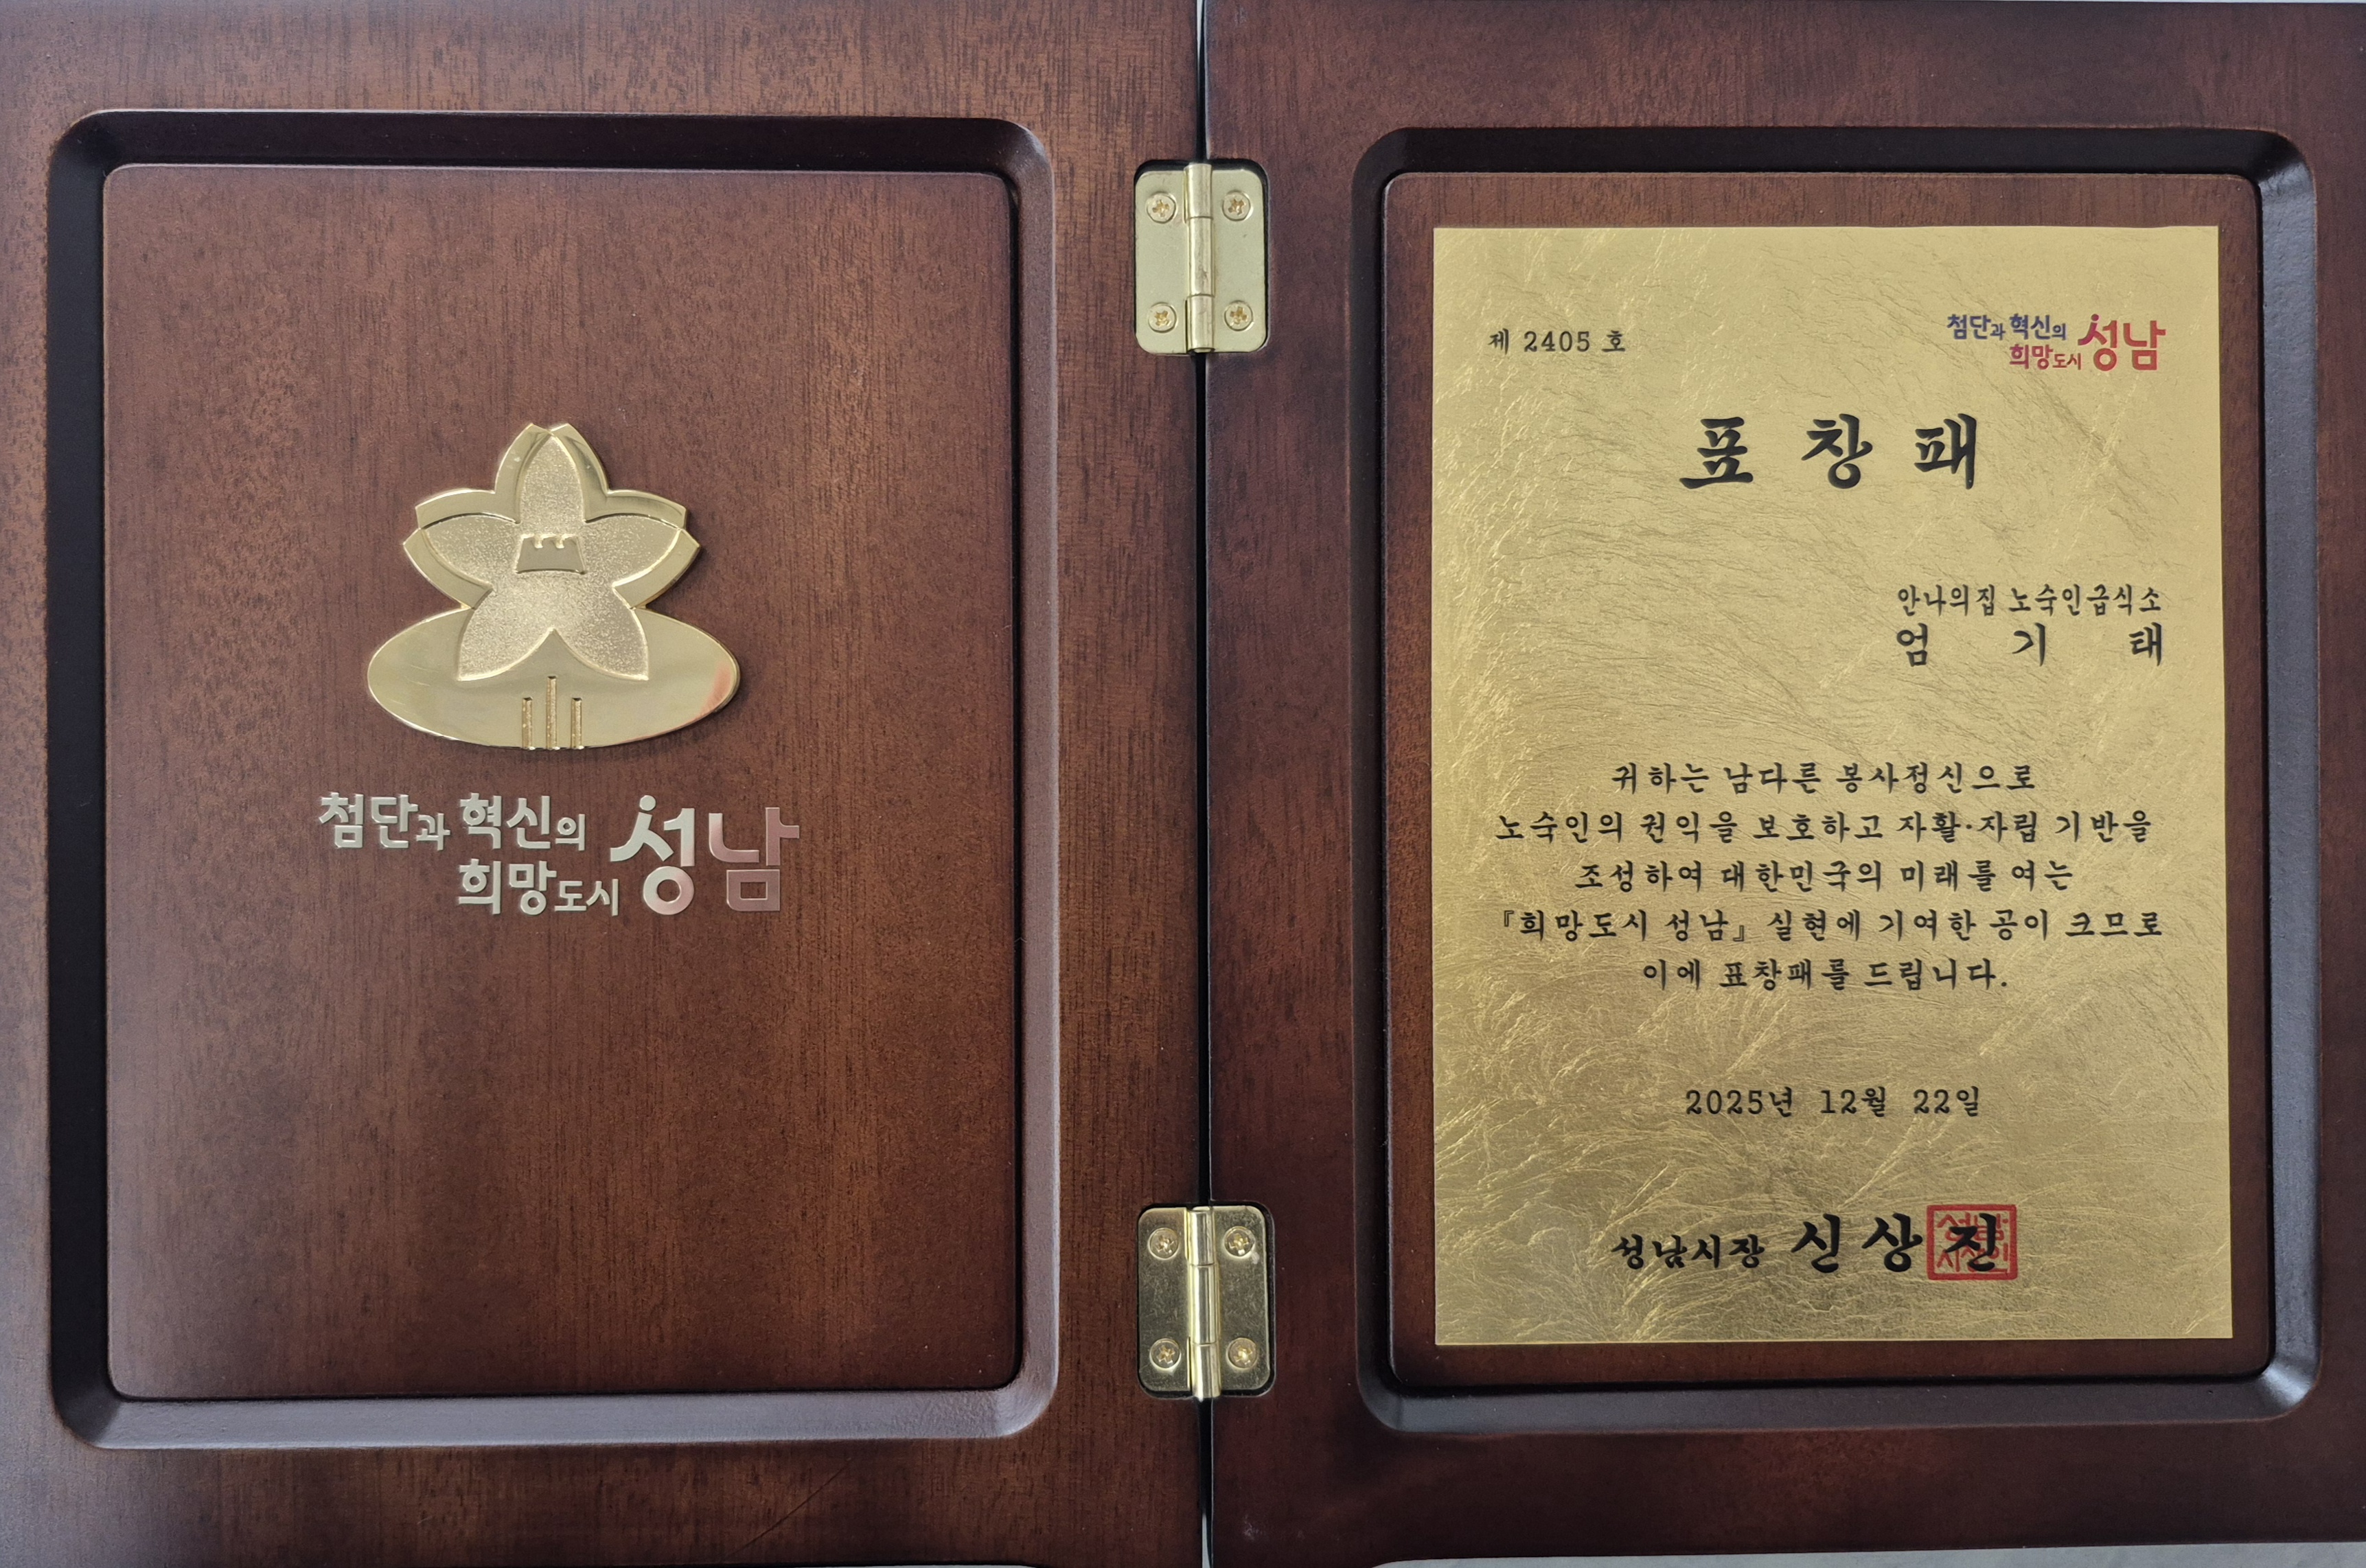 첨단과 혁신의
희망도시 성남
제 2405 호
첨단과 혁신의
희망도시 성남
표 창 패
안나의집 노숙인급식소
엄 기 태
귀하는 남다른 봉사정신으로
노숙인의 권익을 보호하고 자활·자립 기반을
조성하여 대한민국의 미래를 여는
『희망도시 성남』 실현에 기여한 공이 크므로
이에 표창패를 드립니다.
2025년 12월 22일
성남시장 신상진